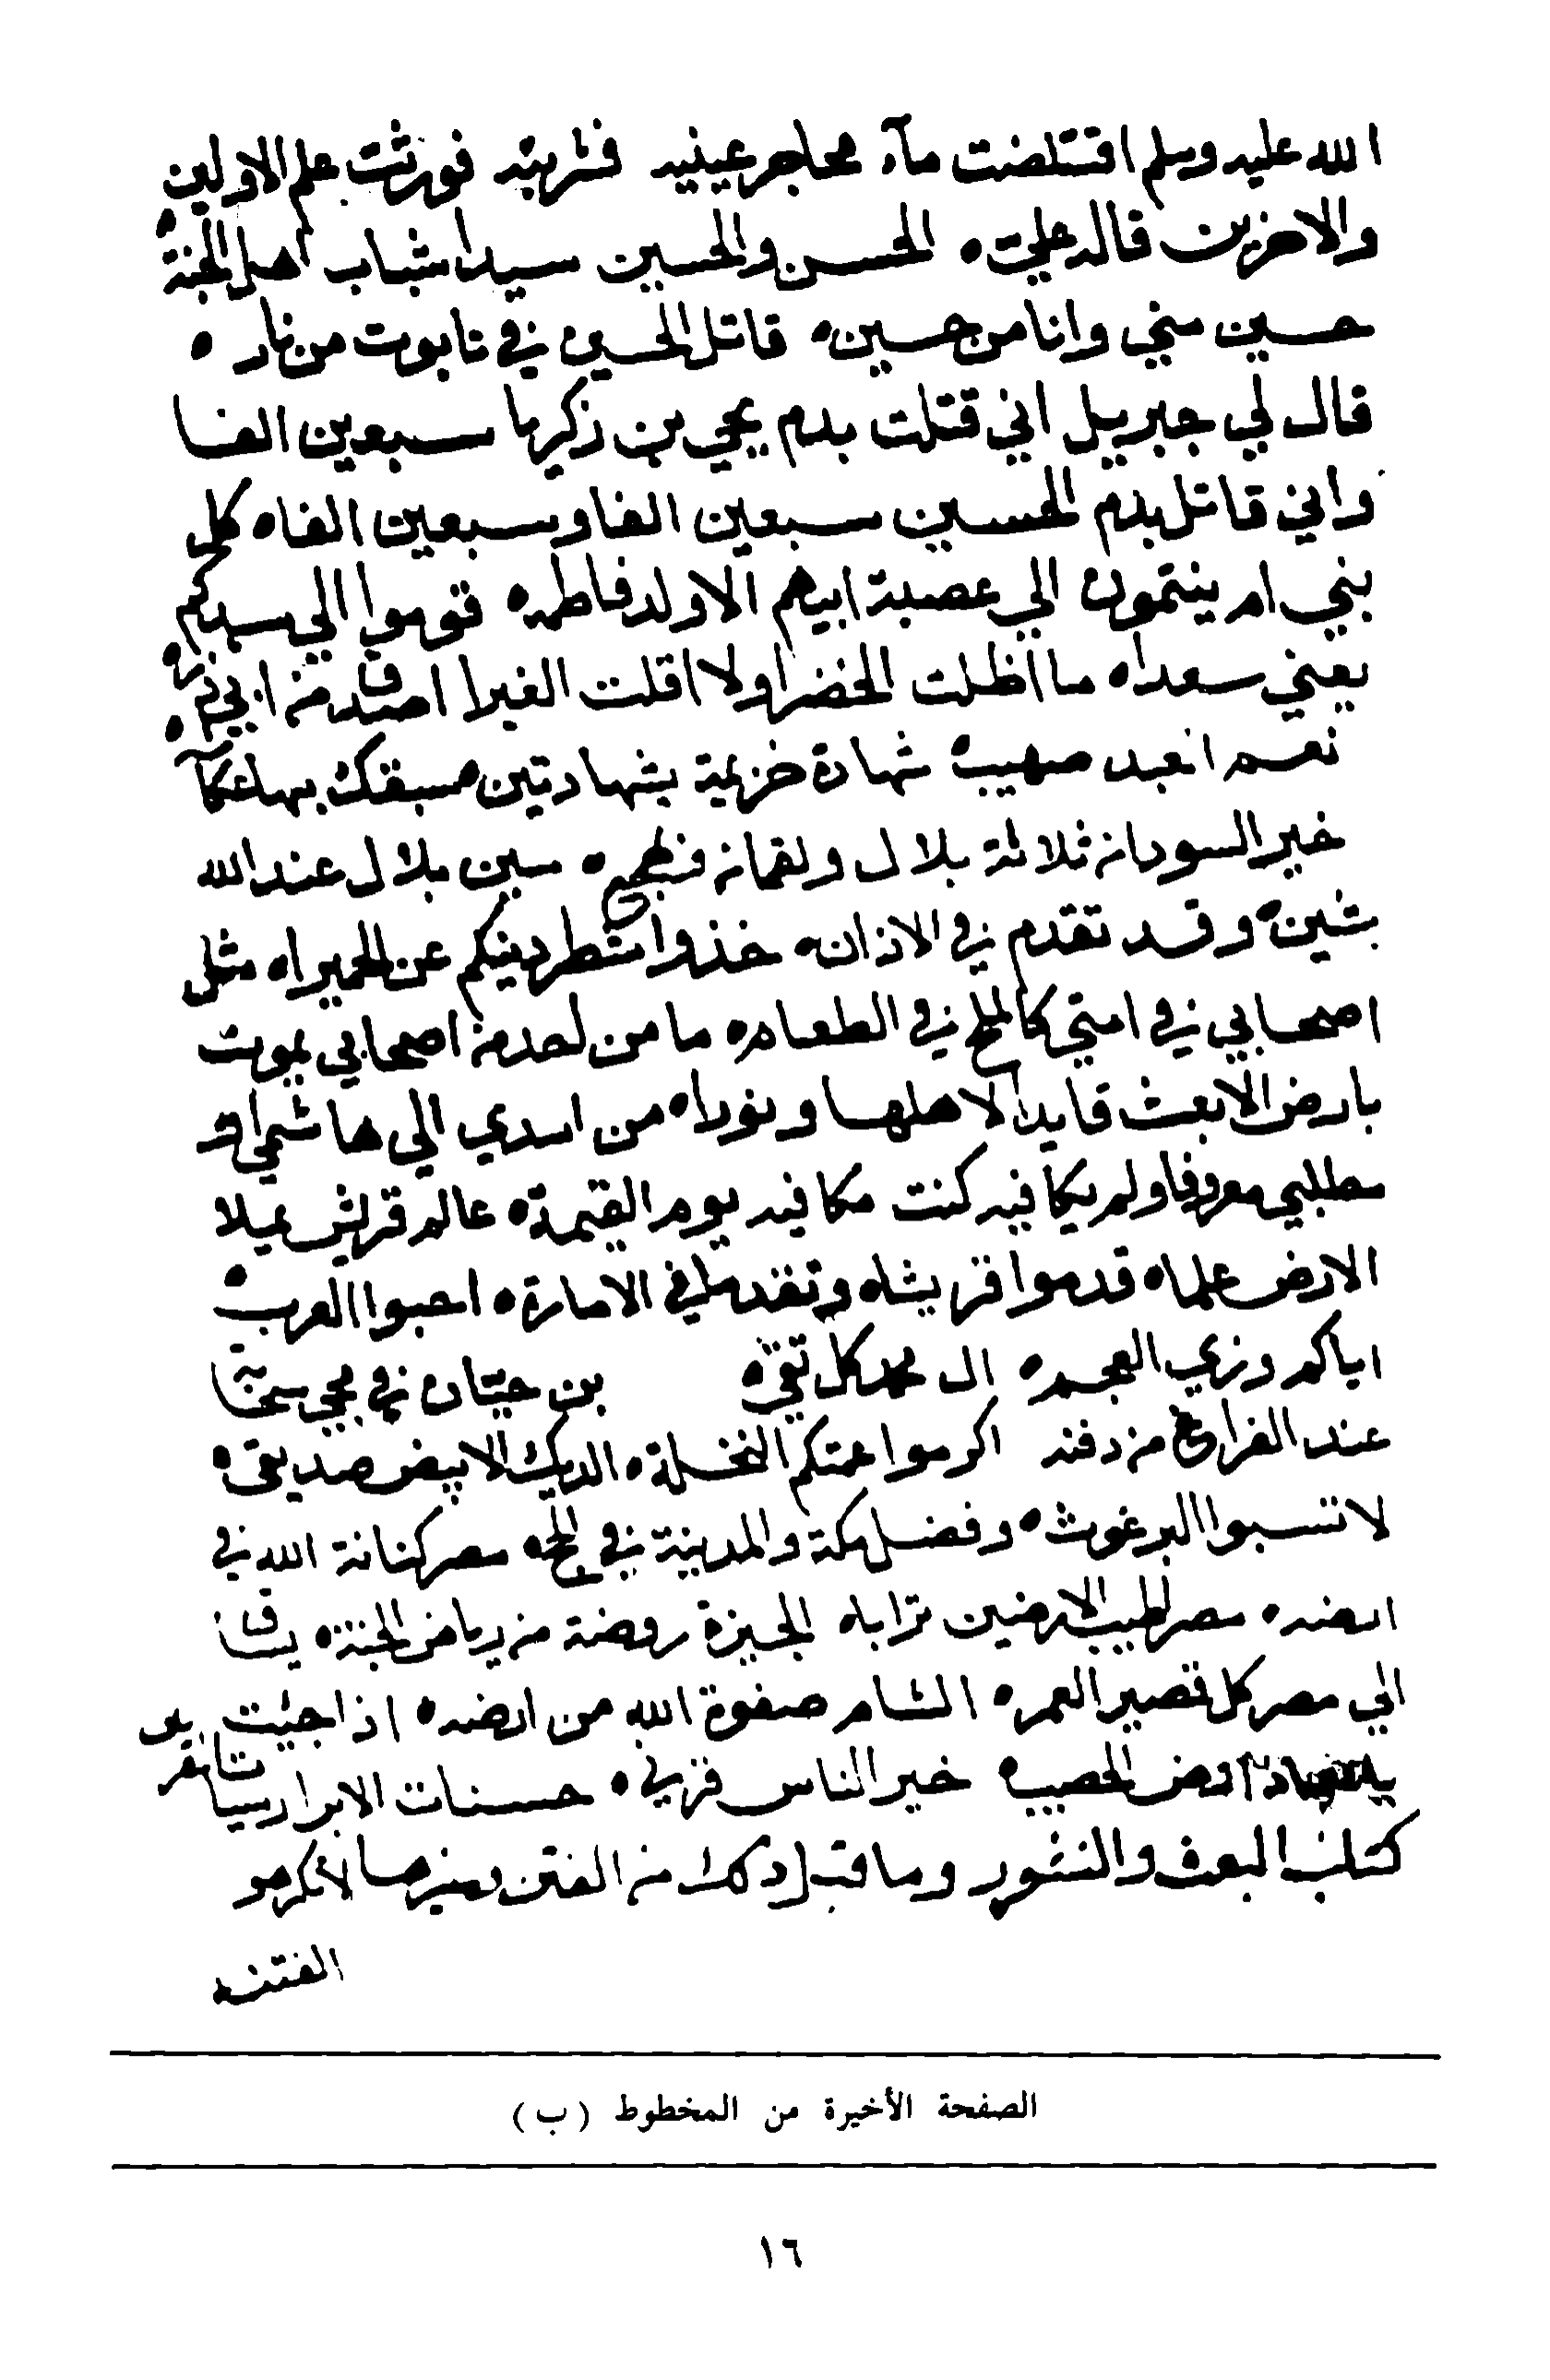 الله عليه وسلم اقتلصت مآء محاجر عينيه فشربته فورثت علم الاولين
والاخرين قاله علي ه الحسن والحسين سيدا شباب اهل الجنة ه
حسين مني وانا من حسين ه قاتل الحسين في تابوت من نار ه
قال لي جبريل اني قتلت بدم يحيي بن زكريا سبعين الفا
واني قاتل بدم الحسين سبعين الفا وسبعين الفا ه كل
بني ام ينتمون الي عصبة ابيهم الا ولد فاطمه ه قوموا الي سيدكم
يعني سعدا ه ما اظلت الخضرا ولا اقلت الغبرا اصدق من ابي ذر ه
نعم العبد صهيب ه شهادة خزيمة بشهادتين ه سبقك بها عكآ
خير السودان ثلاثة بلال ولقمان ه سين بلال عند الله
شين ه وقد تقدم في الاذان ه خذوا شطر دينكم عن الحميرا ه مثل
اصحابي في امتي كالملح في الطعام ه ما من احد من اصحابي يموت
بارض الا بعث قايدا لاهلها ونورا ه من اسدي الي هاشمي او
مطلبي معروفا ولم يكافيه كنت مكافيه يوم القيمة ه عالم قريش يملا
الارض علما ه قدموا قريشا ه وتقدم في الامارة ه احبوا العرب ه
اياكم وزي العجم ه ال محمد كل تقي ه بن حيان في مجي
عند الفراغ من دفنه اكرموا عمتكم النخلة ه الديك الابيض صديقي ه
لا تسبوا البرغوث ه وفضل مكة والمدينة في الحج ه مصر كنانة الله في
ارضه ه مصر اطيب الارضين ترابا ه الجيزة روضة من رياض الجنة ه يساق
الي مصر كل قصير العمر ه الشام صفوة الله من ارضه ه اذا جيت
ارض الحصيب ه خير الناس قرني ه حسنات الابرار سيات
كتاب البعث والنشور وما قبل ذلك من الفتن وغيرها لا تكرهو
الفتنه
الصفحة الأخيرة من المخطوط (ب)
١٦